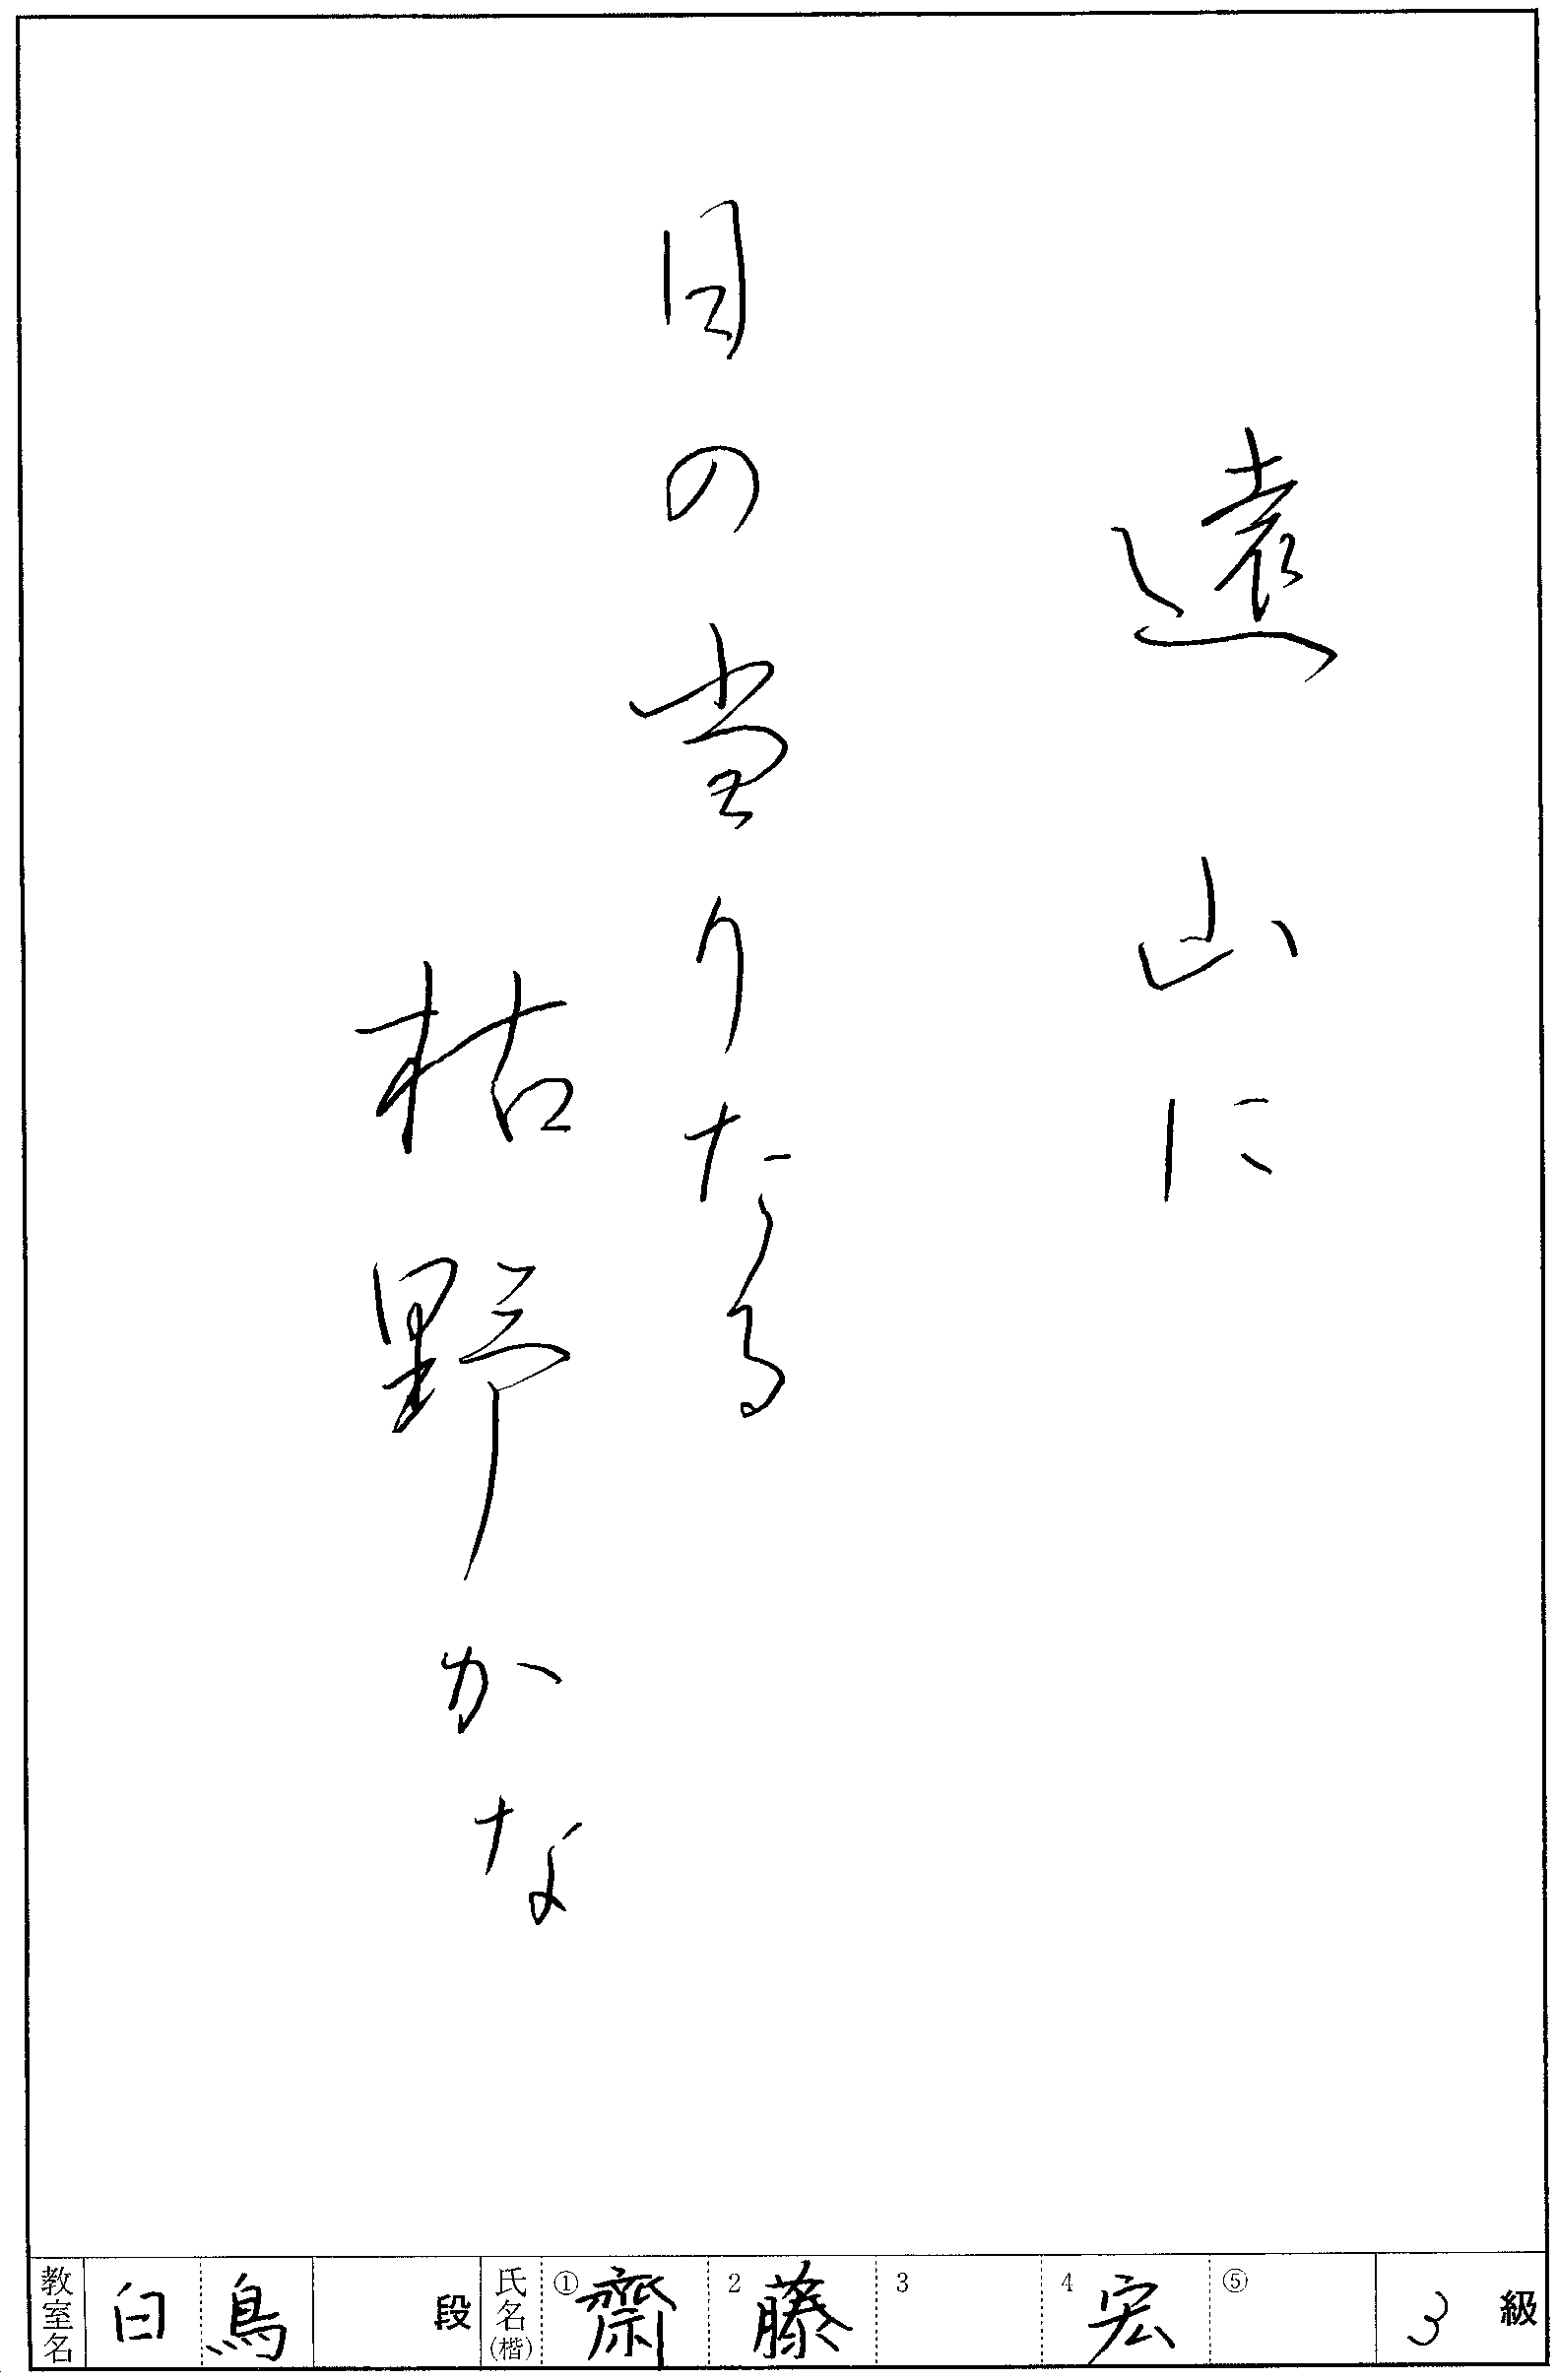 遠山に
日の当りたる
枯野かな
教室名 白鳥 段 氏名(楷) ①齋 2藤 3 4宏 ⑤ 3級